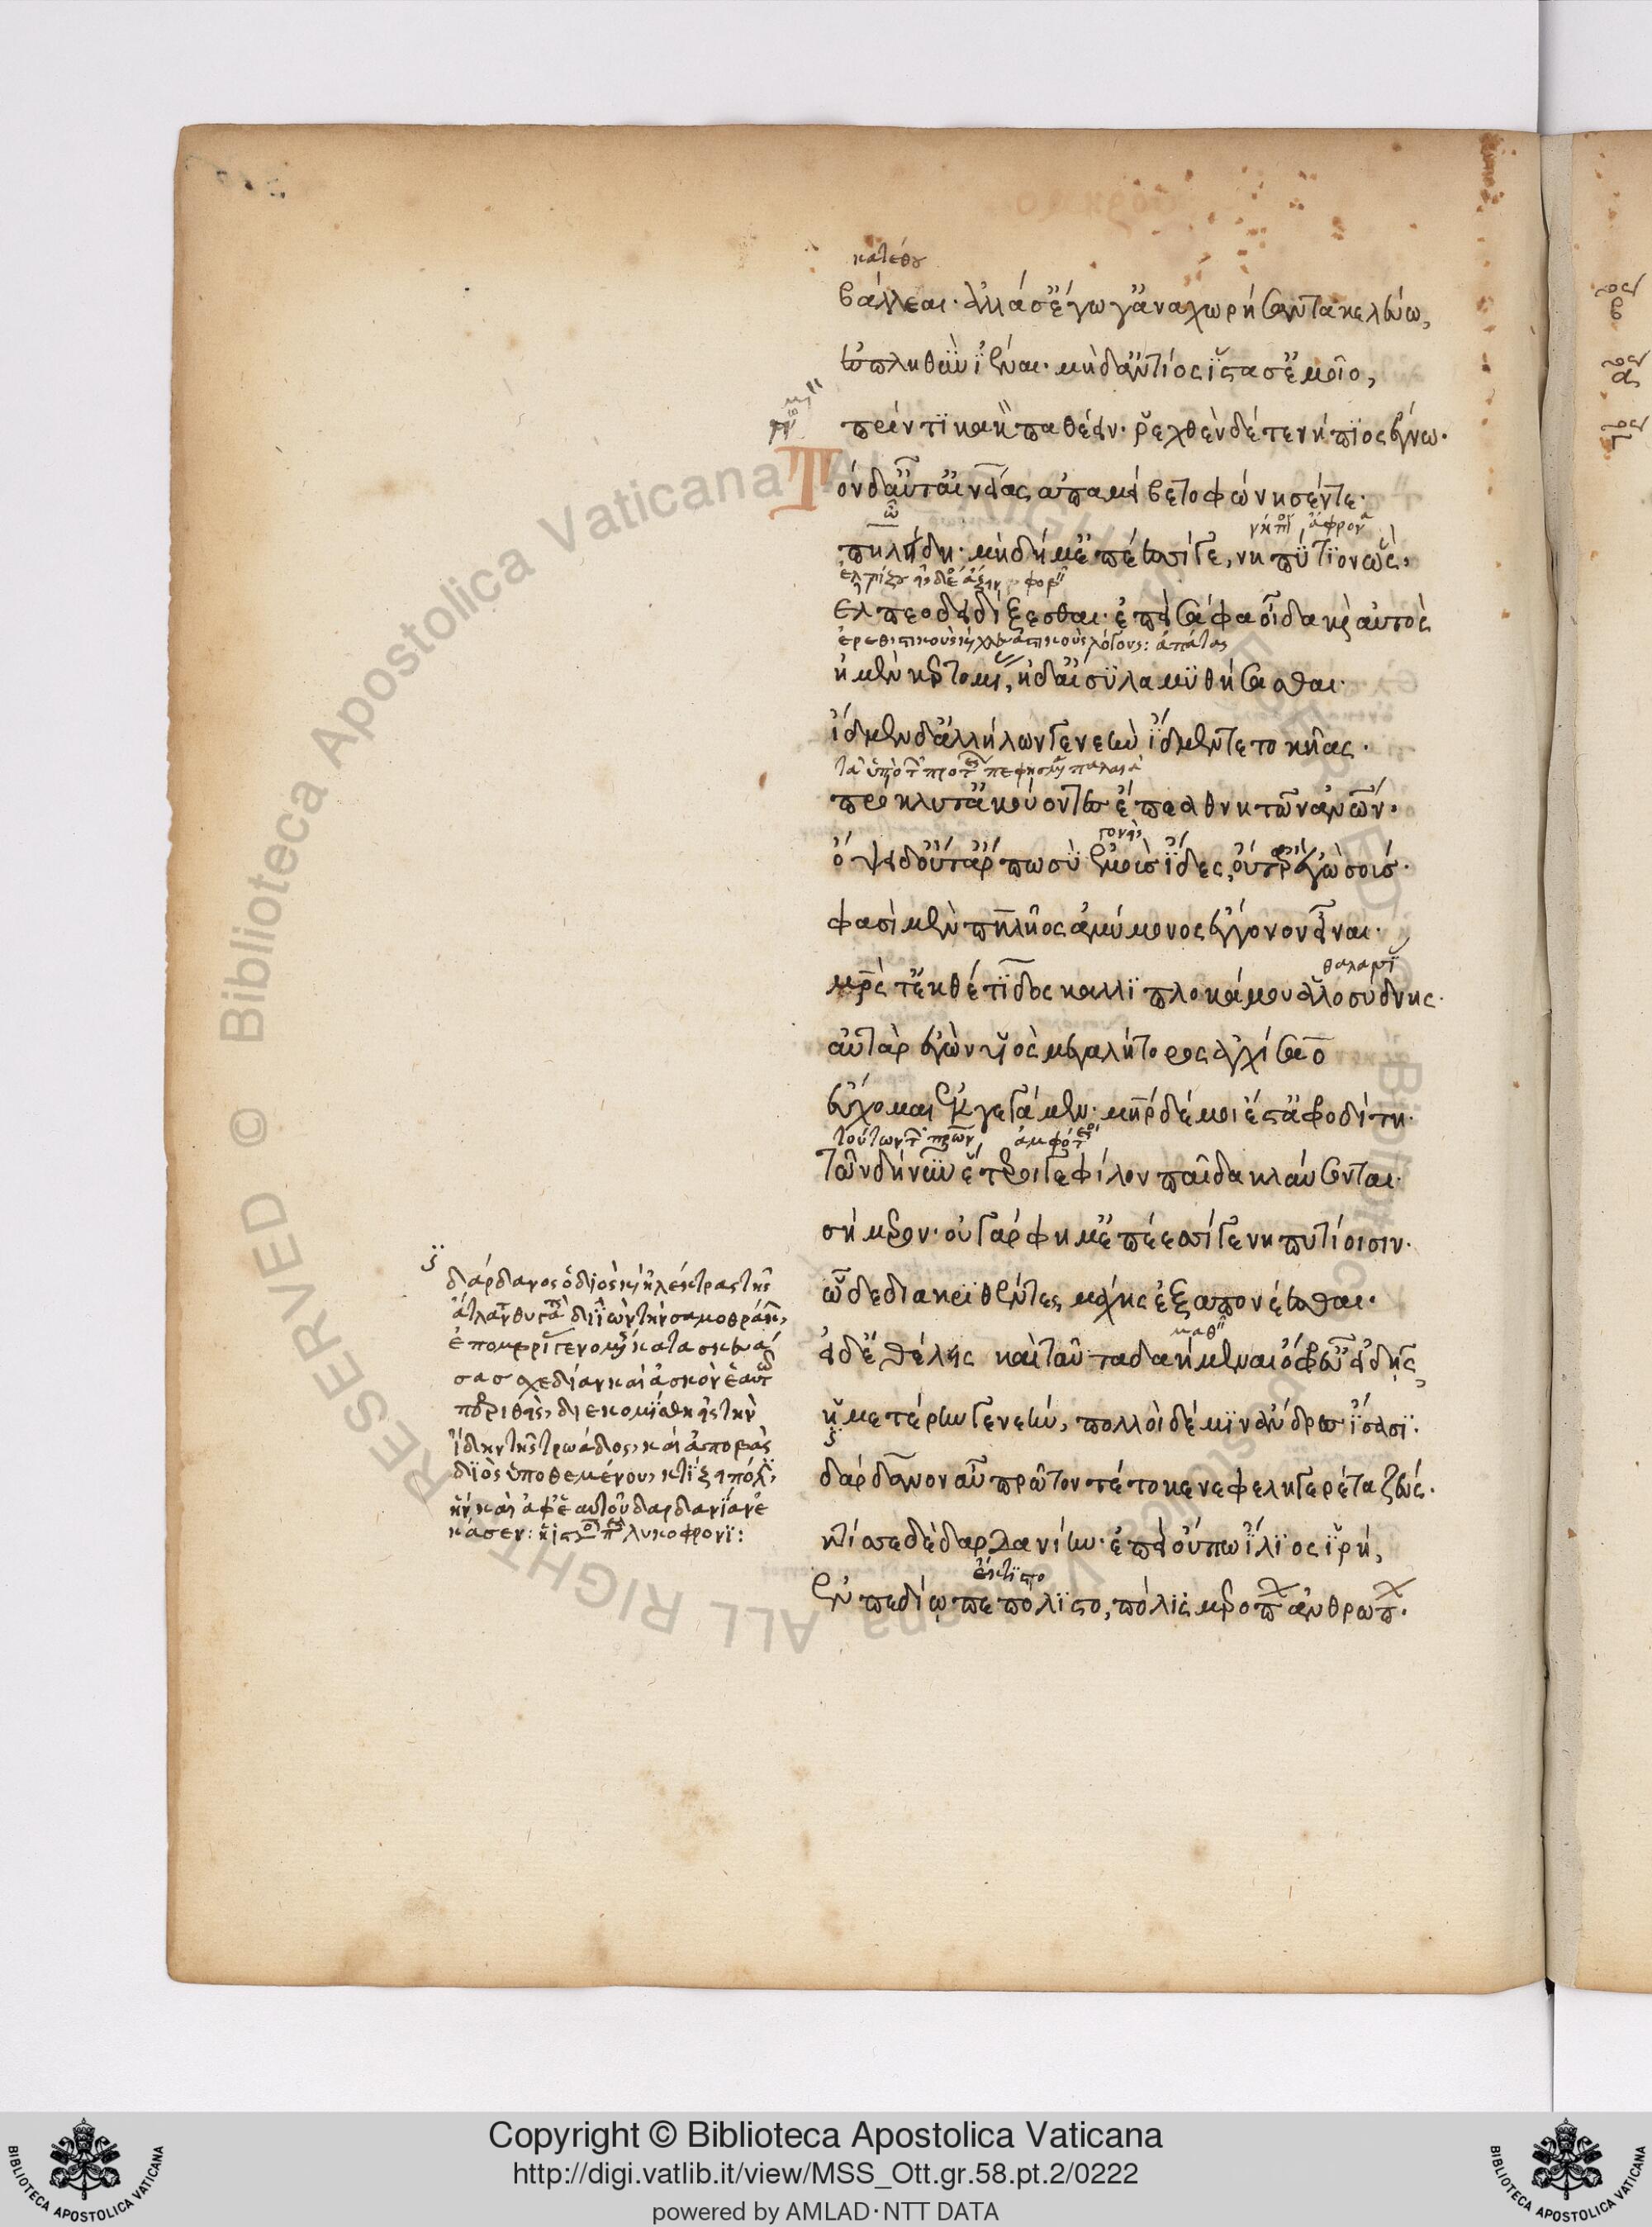 κατέθου
βάλλεαι· ἀλλά σ' ἔγωγ' ἀναχωρήσαντα κελεύω,
ἐς πληθὺν ϊέναι· μὴδ' ἀντίος ἵστασ' ἐμοῖο,
πρίν τι κακὸν παθέειν· ῥεχθὲν δέ τε νήπιος ἔγνω·
Τὸν δ' αὖτ' αἰνείας ἀπαμείβετο φώνησέν τε·
πηλείδη· μὴ δή μ' ἐπέεσσί γε, νηπύτιον ὣς·
ἔλπεο δειδίξεσθαι· ἐπεὶ σάφα οἶδα καὶ αὐτὸς
ἠμὲν κερτομίας, ἠδ' αἴσυλα μυθήσασθαι·
ἴδμεν δ' ἀλλήλων γενεὴν ἴδμεν τε τοκῆας·
πρόκλυτ' ἀκούοντες ἔπεα θνητῶν ἀνθρώπων·
ὄψει δ' οὔτ' ἄρ πω σὺ ἐμοὺς ἴδες, οὔτ' ἄρ' ἐγὼ σούς·
φασὶ μὲν πηλῆος ἀμύμονος ἔκγονον εἶναι·
μητρὸς τ' ἐκ θέτιδος καλλιπλοκάμου ἁλοσύδνης·
αὐτὰρ ἐγὼν υἱὸς μεγαλήτορος ἀγχίσαο
εὔχομαι ἐκγεγάμεν· μήτηρ δέ μοι ἐστ' ἀφροδίτη·
τῶν δὴ νῦν ἕτεροί γε φίλον παῖδα κλαύσονται·
σήμερον· οὐ γάρ φημ' ἐπέεσσί γε νηπυτίοισιν·
ὧδε διακριθέντες μάχης ἐξαπονέεσθαι·
εἰ δ' ἐθέλεις καὶ ταῦτα δαήμεναι ὄφρ' εὖ εἰδῇς,
ἡμετέρην γενεήν, πολλοὶ δέ μιν ἄνδρες ἴσασι·
δάρδανον αὖ πρῶτον τέκετο νεφεληγερέτα ζεύς·
κτίσσε δὲ δαρδανίην· ἐπεὶ οὔπω ἴλιος ἱρή,
ἐν πεδίῳ πεπόλιστο, πόλις μερόπων ἀνθρώπων·
δάρδανος ὁ διὸς καὶ ἠλέκτρας τῆς
ἄτλαντος θυγατρὸς διϊὼν τὴν σαμοθράκην,
ἐπομβρίας γενομένης κατασκευά
σας σχεδίαν καὶ ἀσκὸν ἑαυτῷ
περιθεὶς, διεκομίσθη εἰς τὴν
ἴδην τῆς τρωάδος, καὶ ἀποβὰς
διὸς ὑποθεμένου, κτίζει πόλιν,
ἣν καὶ ἀφ' ἑαυτοῦ δαρδανίαν ἐ
κάλεσεν: ἡ ἱστορία παρὰ λυκόφρονι:
Copyright © Biblioteca Apostolica Vaticana
http://digi.vatlib.it/view/MSS_Ott.gr.58.pt.2/0222
powered by AMLAD·NTT DATA